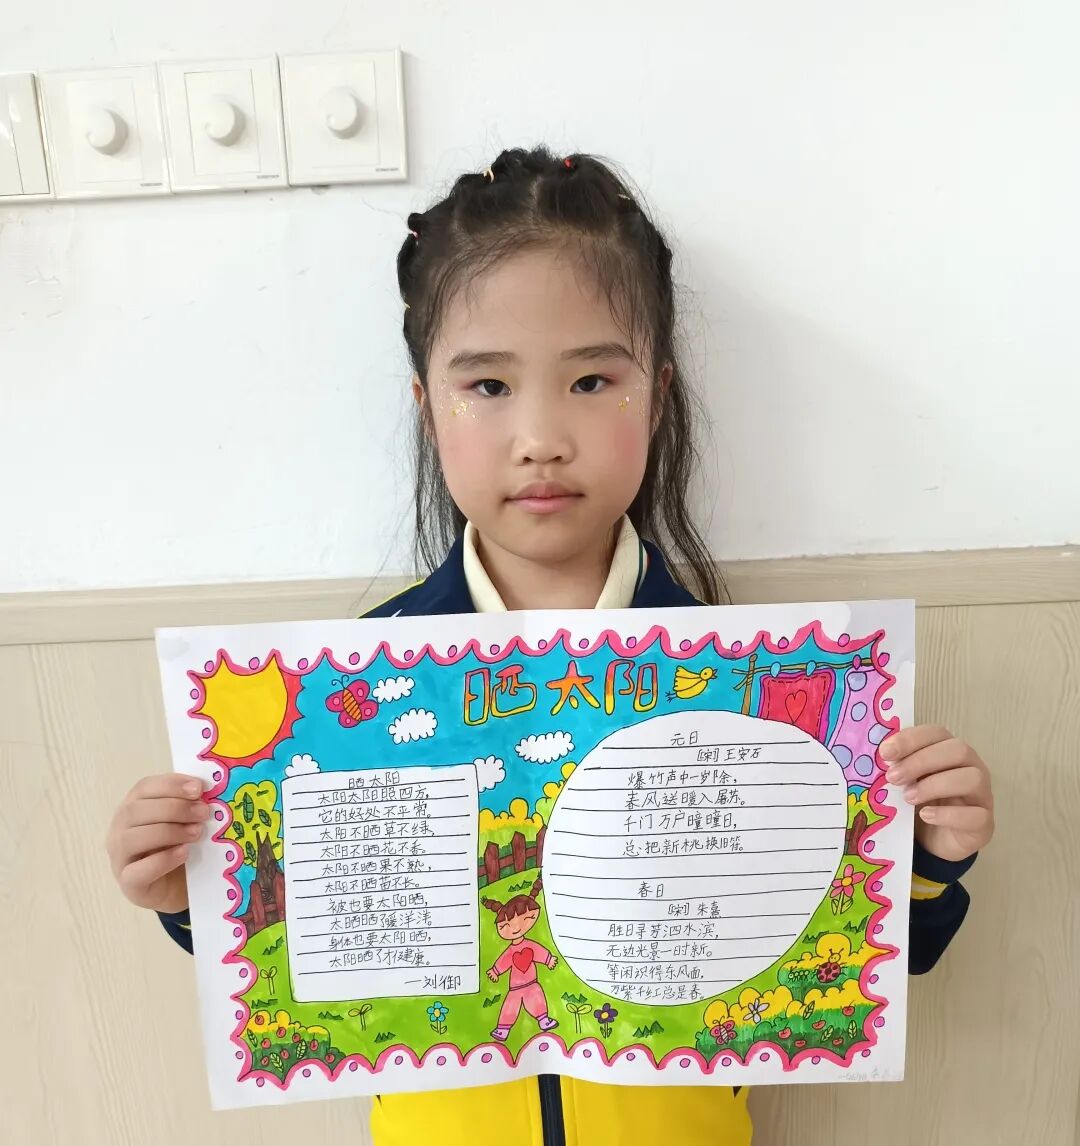 晒太阳
晒太阳
太阳太阳照四方，
它的好处不平常。
太阳不晒草不绿，
太阳不晒花不香。
太阳不晒果不熟，
太阳不晒苗不长。
被也要太阳晒，
太晒晒了暖洋洋。
身体也要太阳晒，
太阳晒了才健康。
—刘御
元日
[宋] 王安石
爆竹声中一岁除，
春风送暖入屠苏。
千门万户曈曈日，
总把新桃换旧符。
春日
[宋] 朱熹
胜日寻芳泗水滨，
无边光景一时新。
等闲识得东风面，
万紫千红总是春。